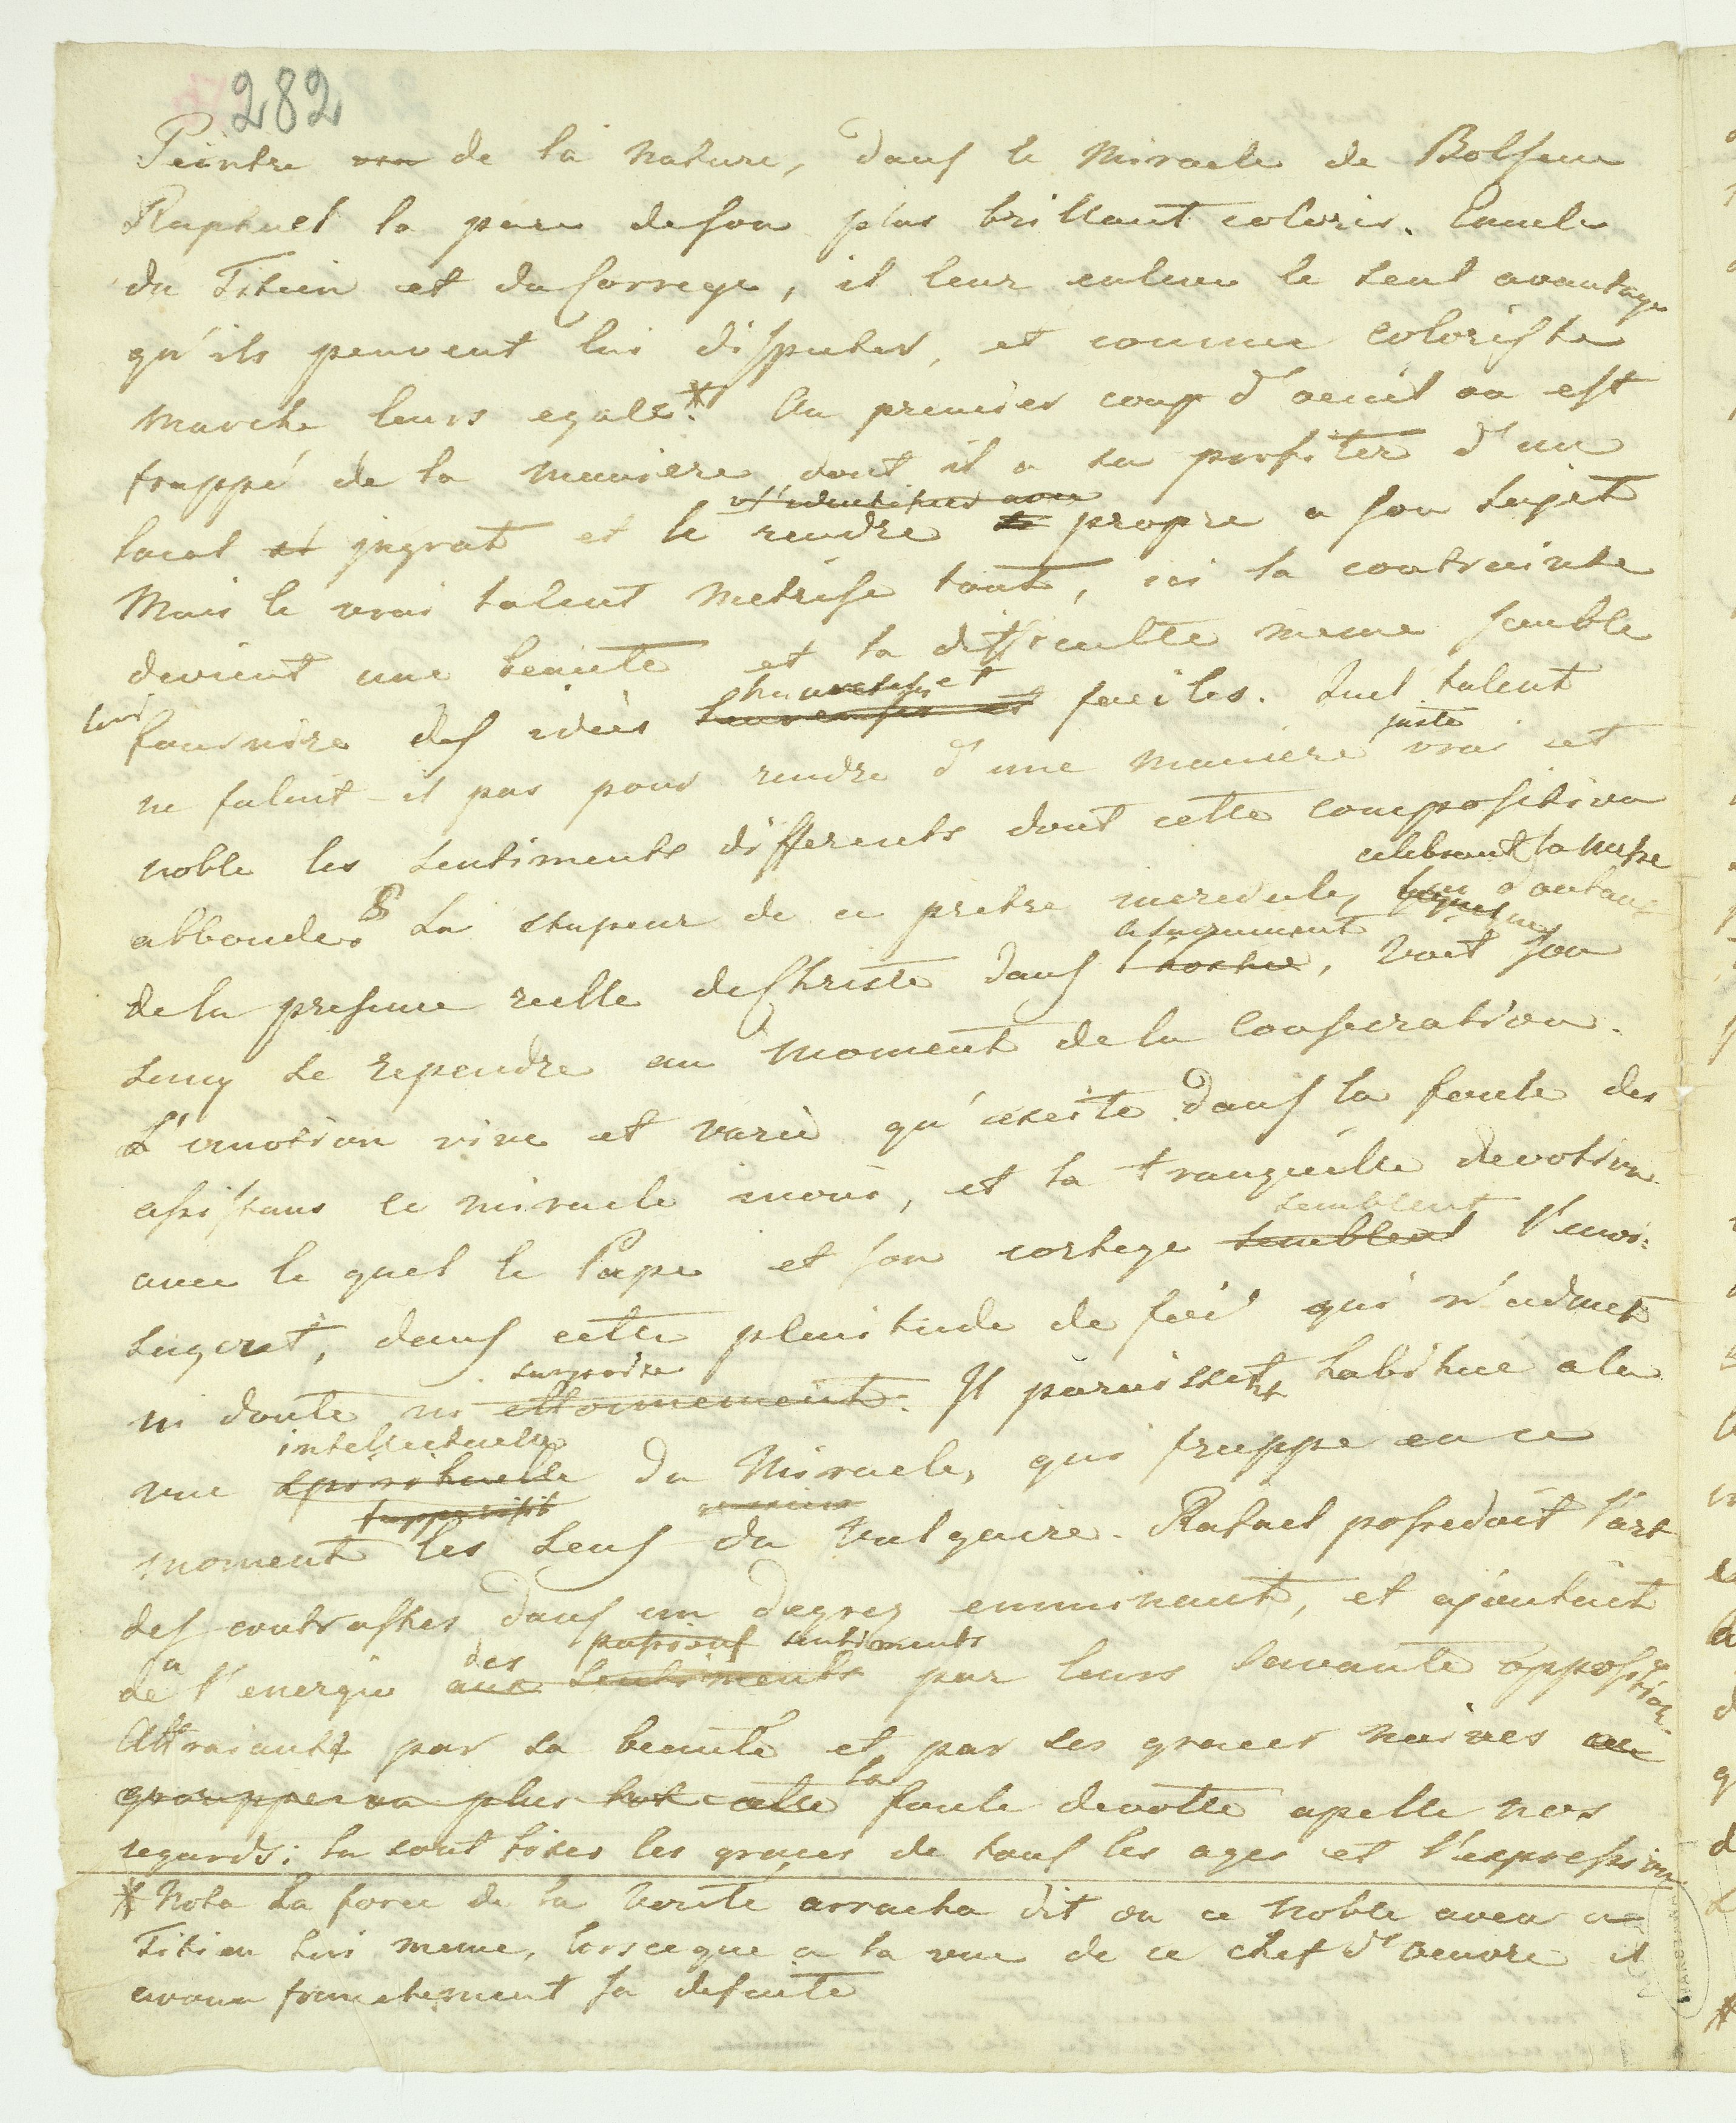 282
Peintre de la nature, dans le Miracle de Bolsene
Raphael la pare de son plus brillant coloris. Emule
du Titien et du Correge, il leur enleve le seul avantage
qu'ils peuvent lui disputer, et comme coloriste
marche leurs egale.* Au premier coup d'oeuil on est
frappé de la maniere dont il a su profiter d'un
local et ingrat et le rendre propre a son sujet
Mais le vrai talent metrise tout, ici la contrainte
devient une beauté et la difficulté meme semble
lui
heureuses et
fournire des idées heureuses et faciles. Quel talent
juste
ne falait-il pas pour rendre d'une maniere vrai et
noble les sentiments differents dont cette composition
celebrant la messe
abbonde. La stupeur de ce pretre incredule, doutant
le sacrement
de la presence reelle de Christe dans l'hostie, voit son
sang se rependre au moment de la Consecration.
L'emotion vive et varié qu'exsite dans la foule des
assistans ce miracle inoui, et la tranquille devotion
semblent
avec le quel le Pape et son cortege semblent l'envi-
sagent, dans cette plenitude de foi qui n'admet
surprise
ni doute ni ettonnement. Il paraissent habitué a la
intellectuelle
vue spirituelle du Miracle, qui frappe en ce
moment les sens du vulgaire. Rafael possedait l'art
des contrastes dans un degrez emminant, et ajoutait
a des passions sentiments
de l'energie aux sentiments par leurs savante opposition.
Attraiante par sa beauté et par ses graces naives
la
grouppe un plus cette foule devotte apelle nos
regards; la sont fixes les graces de tous les ages et l'expression
* Nota La force de la verité arracha dit on ce noble aveu
Titien lui meme, lorsceque a la vue de ce chef d'oeuvre il
avoua franchement sa defaite